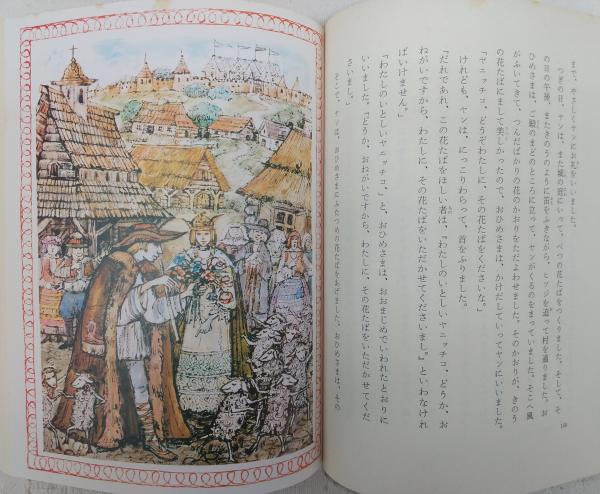 まで、やさしくヤンにお礼をいいました。
つぎの日、ヤンは、また城の庭にいって、べつの花たばをつくりました。そして、そ
の日の午後、またきのうのように笛をふきながら、ヒツジを追って村を通りました。お
ひめさまは、御殿のまどのところに立って、ヤンがくるのをまっていました。そこへ風
がふいてきて、つんだばかりの花のかおりをただよわせました。そのかおりが、きのう
の花たばにまして美しかったので、おひめさまは、かけだしていってヤンにいいました。
「ヤニッチコ、どうぞわたしに、その花たばをくださいな。」
けれども、ヤンは、にっこりわらって、首をふりました。
「だれであれ、この花たばをほしい者は、『わたしのいとしいヤニッチコ、どうか、お
ねがいですから、わたしに、その花たばをいただかせてくださいまし。』といわなけれ
ばいけません。」
「わたしのいとしいヤニッチコ。」と、おひめさまは、おおまじめでいわれたとおりに
いいました。「どうか、おねがいですから、わたしに、その花たばをいただかせてくだ
さいまし。」
そこで、ヤンは、おひめさまにふたつめの花たばをあげました。おひめさまは、その